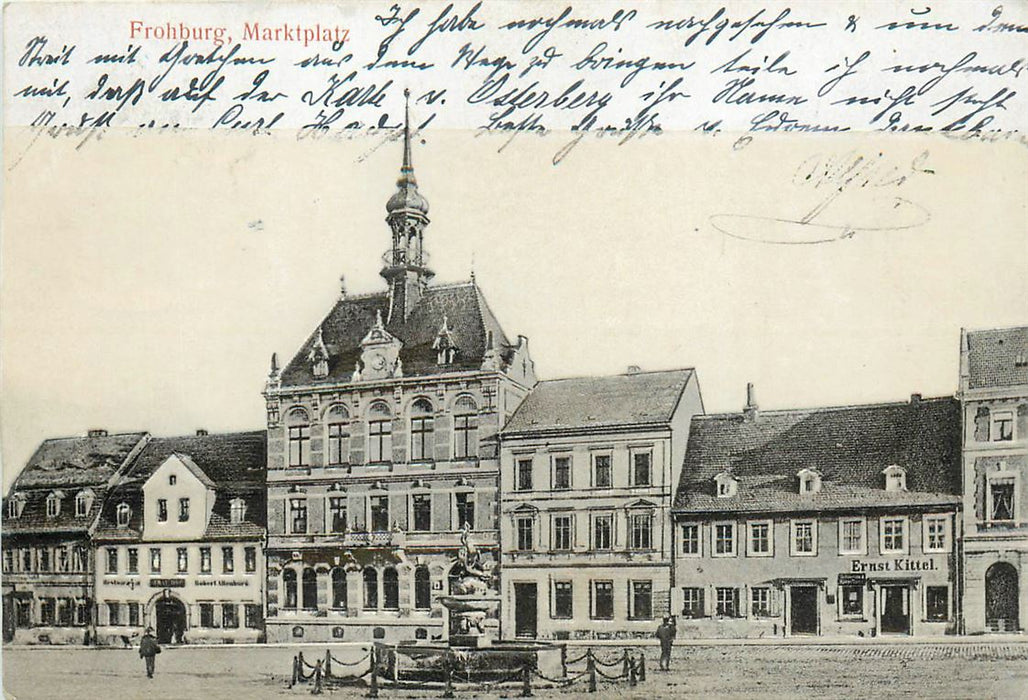 Frohburg, Marktplatz
Ich habe nochmals nachgesehen & um den
Streit mit Gretchen aus dem Wege zu bringen teile ich nochmals
mit, daß auf der Karte v. Osterberg ihr Name nicht steht
Gruß an Curt Beste Grüße v. Eurem dankbaren
Alfred
Restauration Robert Altenburg
Ernst Kittel.